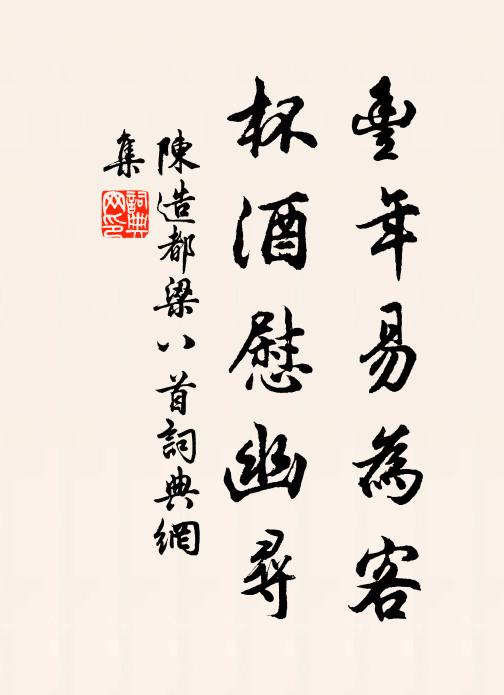 豐年易為客
杯酒慰幽尋
陳造都梁八首詞典網
集
詞典網印